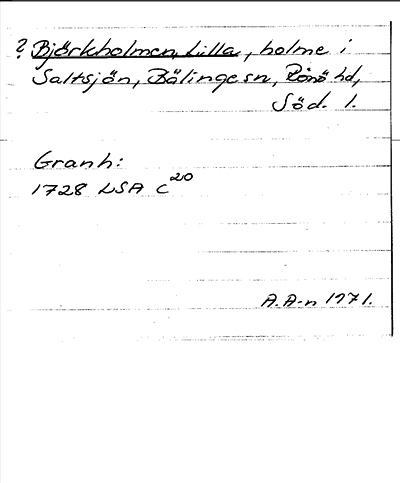 ? Björkholmen, Lilla, holme i
Saltsjön, Bälinge sn, Rönö hd,
Söd. l.
Granh:
1728 LSA C20
A.A-n 1971.